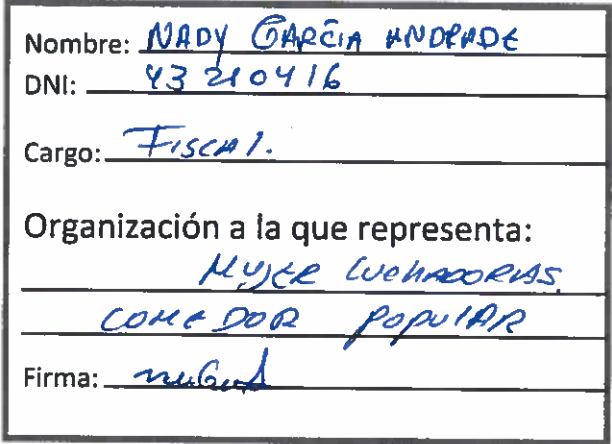 Nombre: NADY GARCIA ANDRADE
DNI: 43210416
Cargo: FISCAL.
Organización a la que representa:
MUJER LUCHADORAS
COMEDOR POPULAR
Firma: